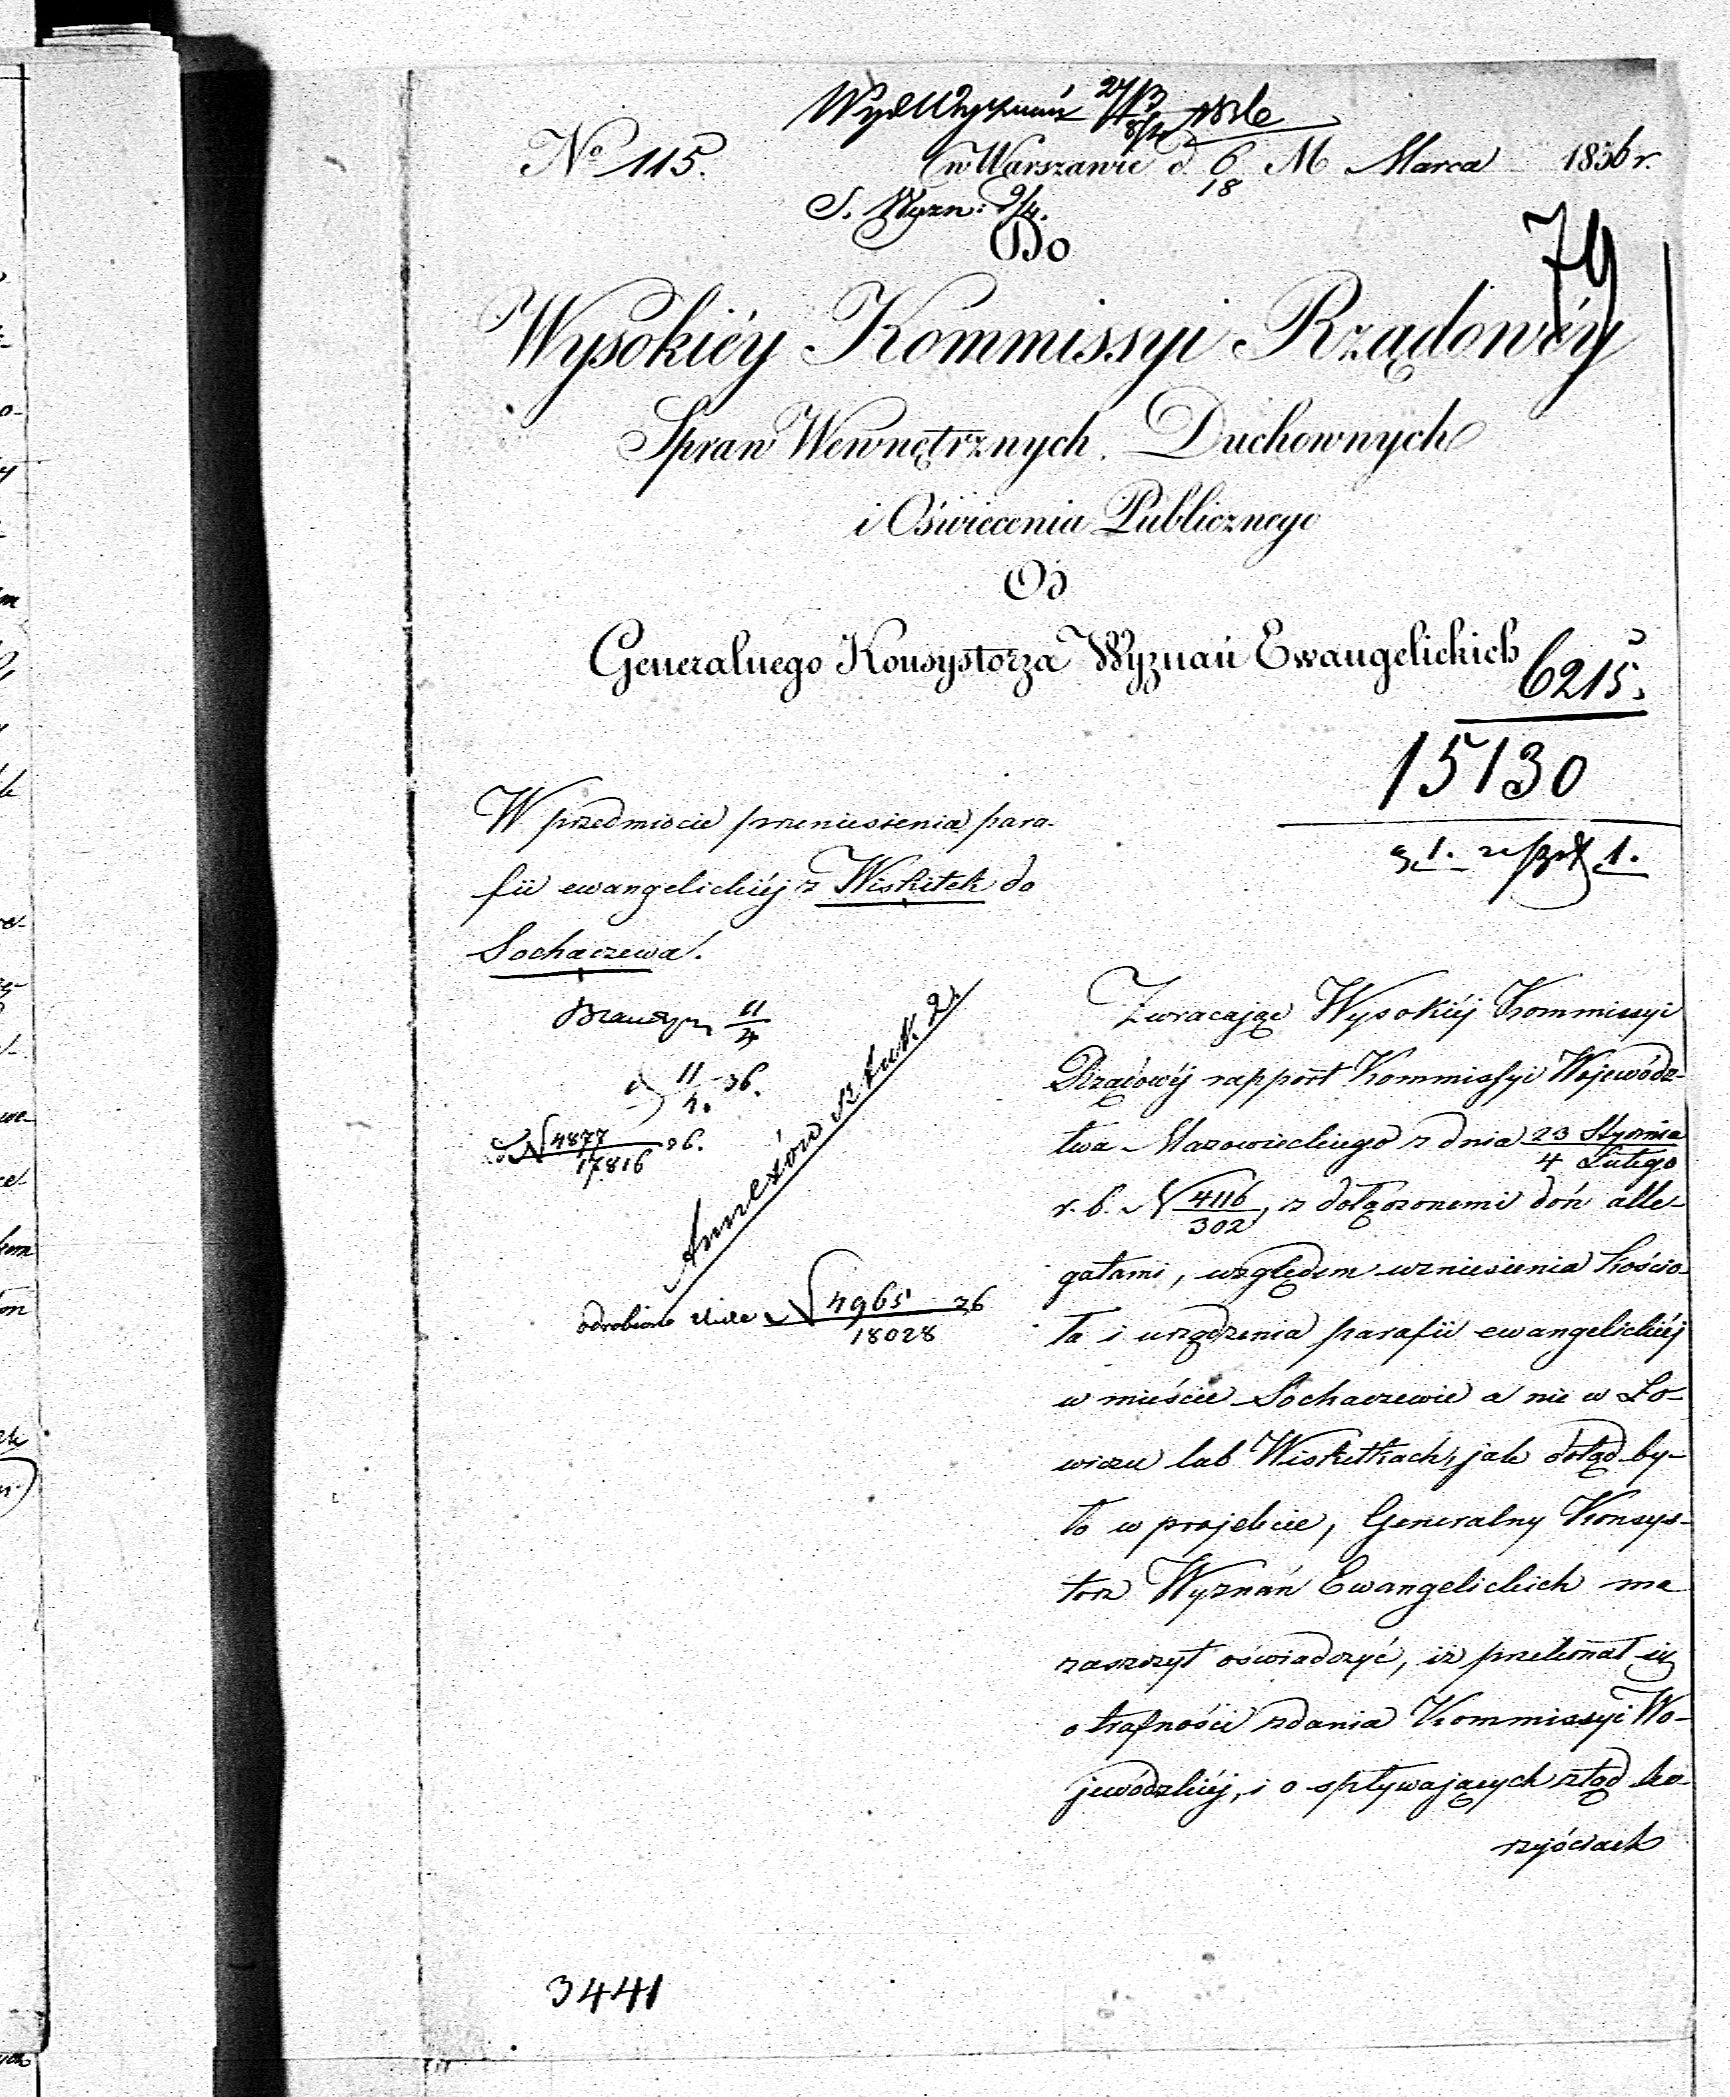 Wydz Wyznań 27/3 1836
No 115.
w Warszawie d. 6/18 M Marca 1836 r.
S. Wyzn: 9/4.
79
Do
Wysokiéy Kommissyi Rządowéy
Spraw Wewnętrznych. Duchownych
i Oświecenia Publicznego
Od
Generalnego Konsystorza Wyznań Ewangelickich
6215.
15130
W przedmiocie przeniesienia para-
fii ewangelickiéj z Wiskitek do
Sochaczewa.
11/4
11/4. 36.
N 4877/17816 36.
Annexów sztuk 2.
odrobiono N 4965/18028 36
Zwracając Wysokiéj Kommissyi
Rządowéj rapport Kommissyi Wojewódz-
twa Mazowieckiego z dnia 23 Stycznia/4 Lutego
r. b. N 4116/302, z dołączonemi doń alle-
gatami, względem wzniesienia kościo-
ła i urządzenia parafii ewangelickiéj
w mieście Sochaczewie a nie w Ło-
wiczu lub Wiskitkach, jak dotąd by-
ło w projekcie, Generalny Konsys-
torz Wyznań Ewangelickich ma
zaszczyt oświadczyć, iż przekonał się
o trafności zdania Kommissyi Wo-
jewódzkiéj, i o spływających ztąd ko-
rzyściach
3441